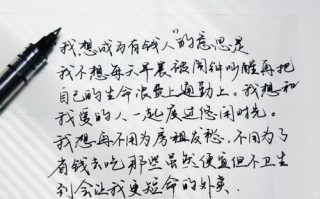 我想成为有钱人”的意思是
我不想每天早晨被闹钟叫醒再把
自己的生命浪费上通勤上。我想和
我爱的人一起度过悠闲时光。
我想再不用为房租发愁，不用为了
省钱去吃那些虽然便宜但不卫生
到会让我更短命的外卖.